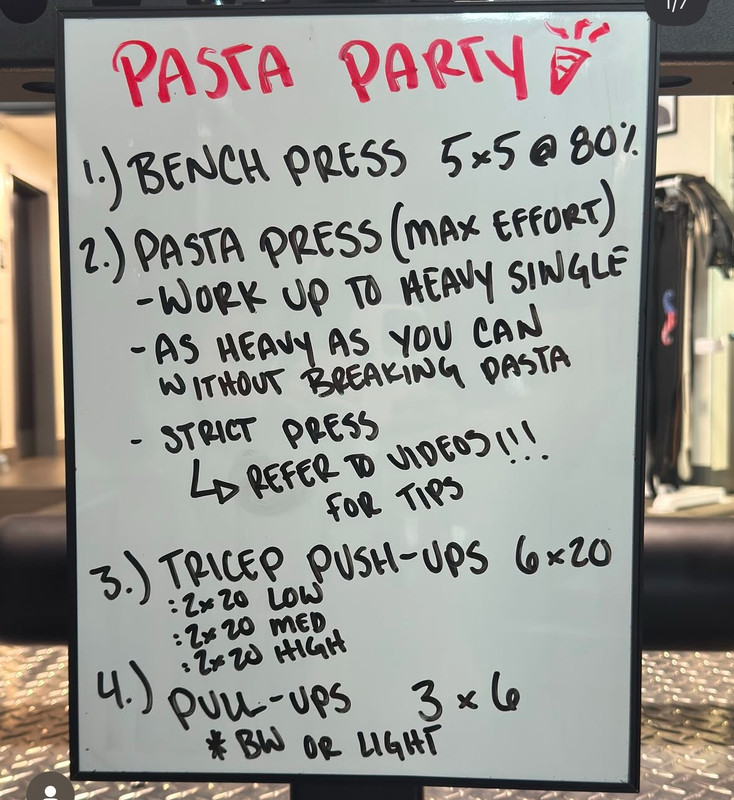 1/7
PASTA PARTY
1.) BENCH PRESS 5x5 @ 80%
2.) PASTA PRESS (MAX EFFORT)
-WORK UP TO HEAVY SINGLE
-AS HEAVY AS YOU CAN
WITHOUT BREAKING PASTA
- STRICT PRESS
↳ REFER TO VIDEOS!!!
FOR TIPS
3.) TRICEP PUSH-UPS 6x20
:2x20 LOW
:2x20 MED
:2x20 HIGH
4.) PULL-UPS 3 x 6
* BW OR LIGHT